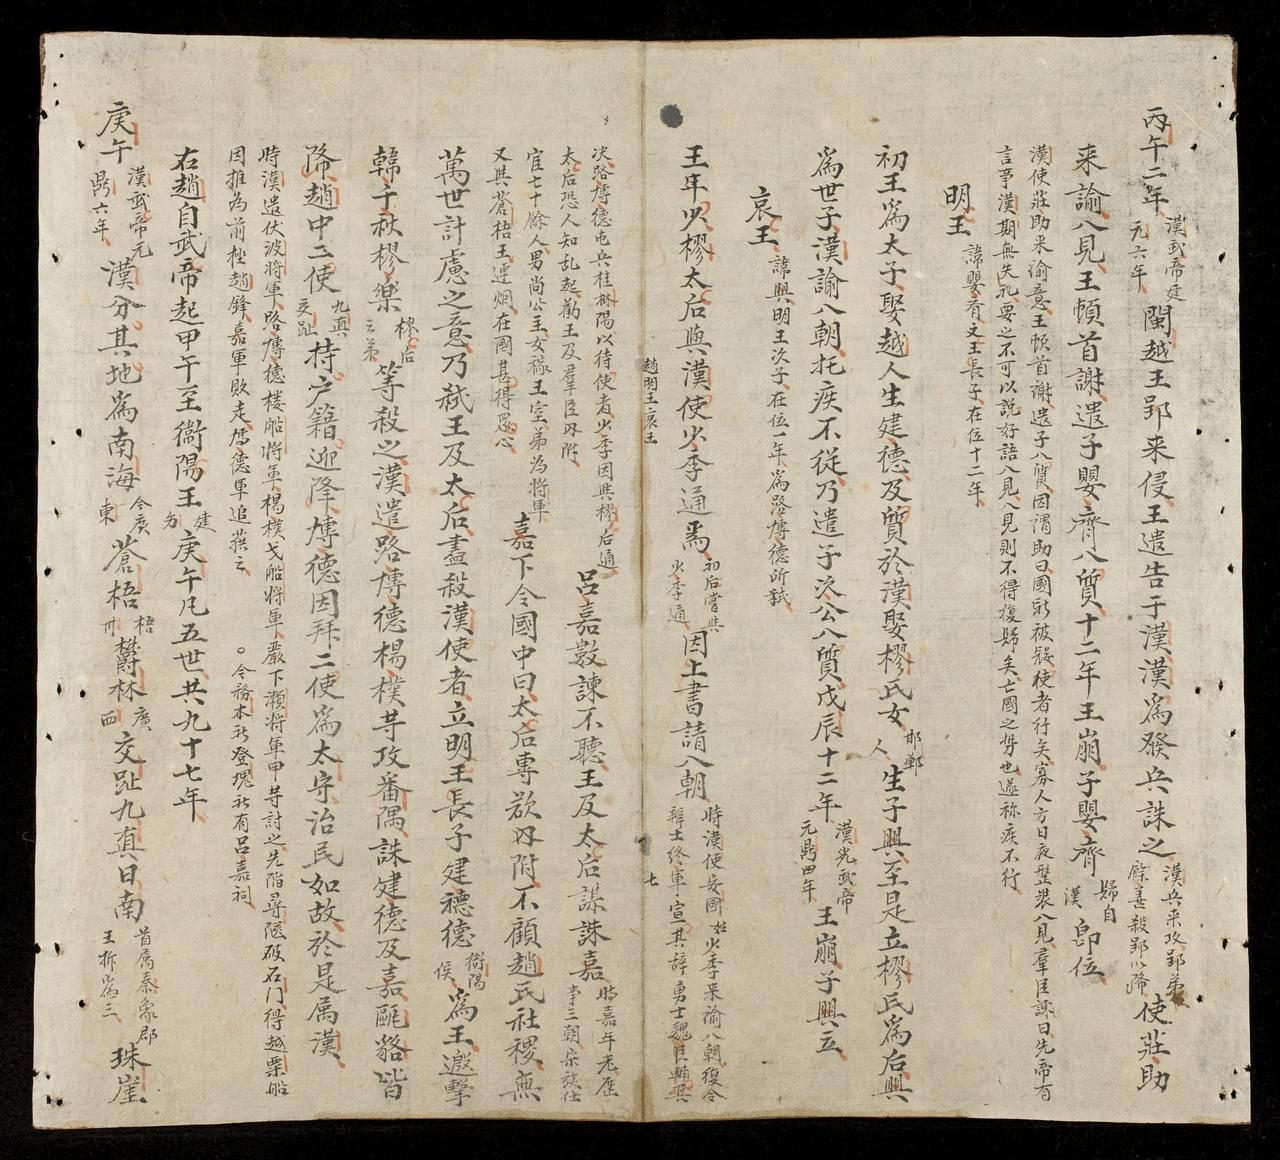 丙午二年漢武帝建元六年閩越王郢来侵王遣告于漢漢爲發兵誅之漢兵来攻郢弟餘善殺郢以降使莊助
来諭入見王頓首謝遣子嬰齊入質十二年王崩子嬰齊歸自漢卽位
漢使莊助来諭意王頓首謝遣子入質因謂助曰國新被冦使者行矣寡人方日夜整裝入見羣臣諫曰先帝有
言事漢期無失礼要之不可以説好語入見入見則不得復歸矣亡國之势也遂称疾不行
明王諱嬰齊文王長子在位十二年
初王爲太子娶越人生建德及質於漢娶樛氏女邯鄲人生子興至是立樛氏爲后興
爲世子漢諭入朝托疾不從乃遣子次公入質戊辰十二年漢光武帝元鼎四年王崩子興立
哀王諱興明王次子在位一年爲路博德所弑
王年少樛太后與漢使少季通焉初后嘗與少季通因上書請入朝時漢使安國姓少季来諭入朝復令辨士終軍宣其辞勇士魏臣輔其
趙明王哀王
七
决路博德屯兵桂林陽以待使者少季因與樛后通
太后恐人知乱起勸王及羣臣内附
呂嘉數諫不聽王及太后謀誅嘉時嘉年老歷事三朝宗族仕
宦七十餘人男尚公主女禄王室弟为将軍
又其蒼梧王連姻在國甚得眾心
嘉下令國中曰太后專欲内附不顧趙氏社稷無
萬世計慮之意乃弑王及太后盡殺漢使者立明王長子建德德衛陽侯爲王邀擊
韓千秋樛樂樛后之弟等殺之漢遣路博德楊樸等攻番隅誅建德及嘉甌貉皆
降趙中二使九真交趾持户籍迎降博德因拜二使爲太守治民如故於是属漢
時漢遣伏波将軍路博德楼船将軍楊樸戈船将軍嚴下瀬将軍甲等討之先陷尋陿破石门得越粟船
因推为前挫趙鋒嘉軍敗走博德軍追獲之 今務本社登瑰社有呂嘉祠
右趙自武帝起甲午至衛陽王建为庚午凡五世共九十七年
庚午漢武帝元鼎六年漢分其地爲南海今廣東蒼梧梧州欝林廣西交趾九真日南首属秦象郡王拆为三珠崖